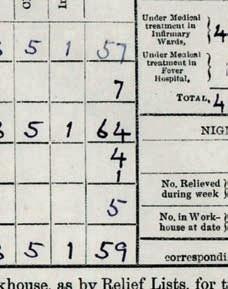 5 1 57
7
5 1 64
4
1
5
5 1 59
Under Medical
treatment in
Infirmary
Wards,
4
Under Medical
treatment in
Fever
Hospital,
TOTAL, 4
NIGH
No. Relieved
during week
No. in Work-
house at date
correspondi
khouse, as by Relief Lists, for t